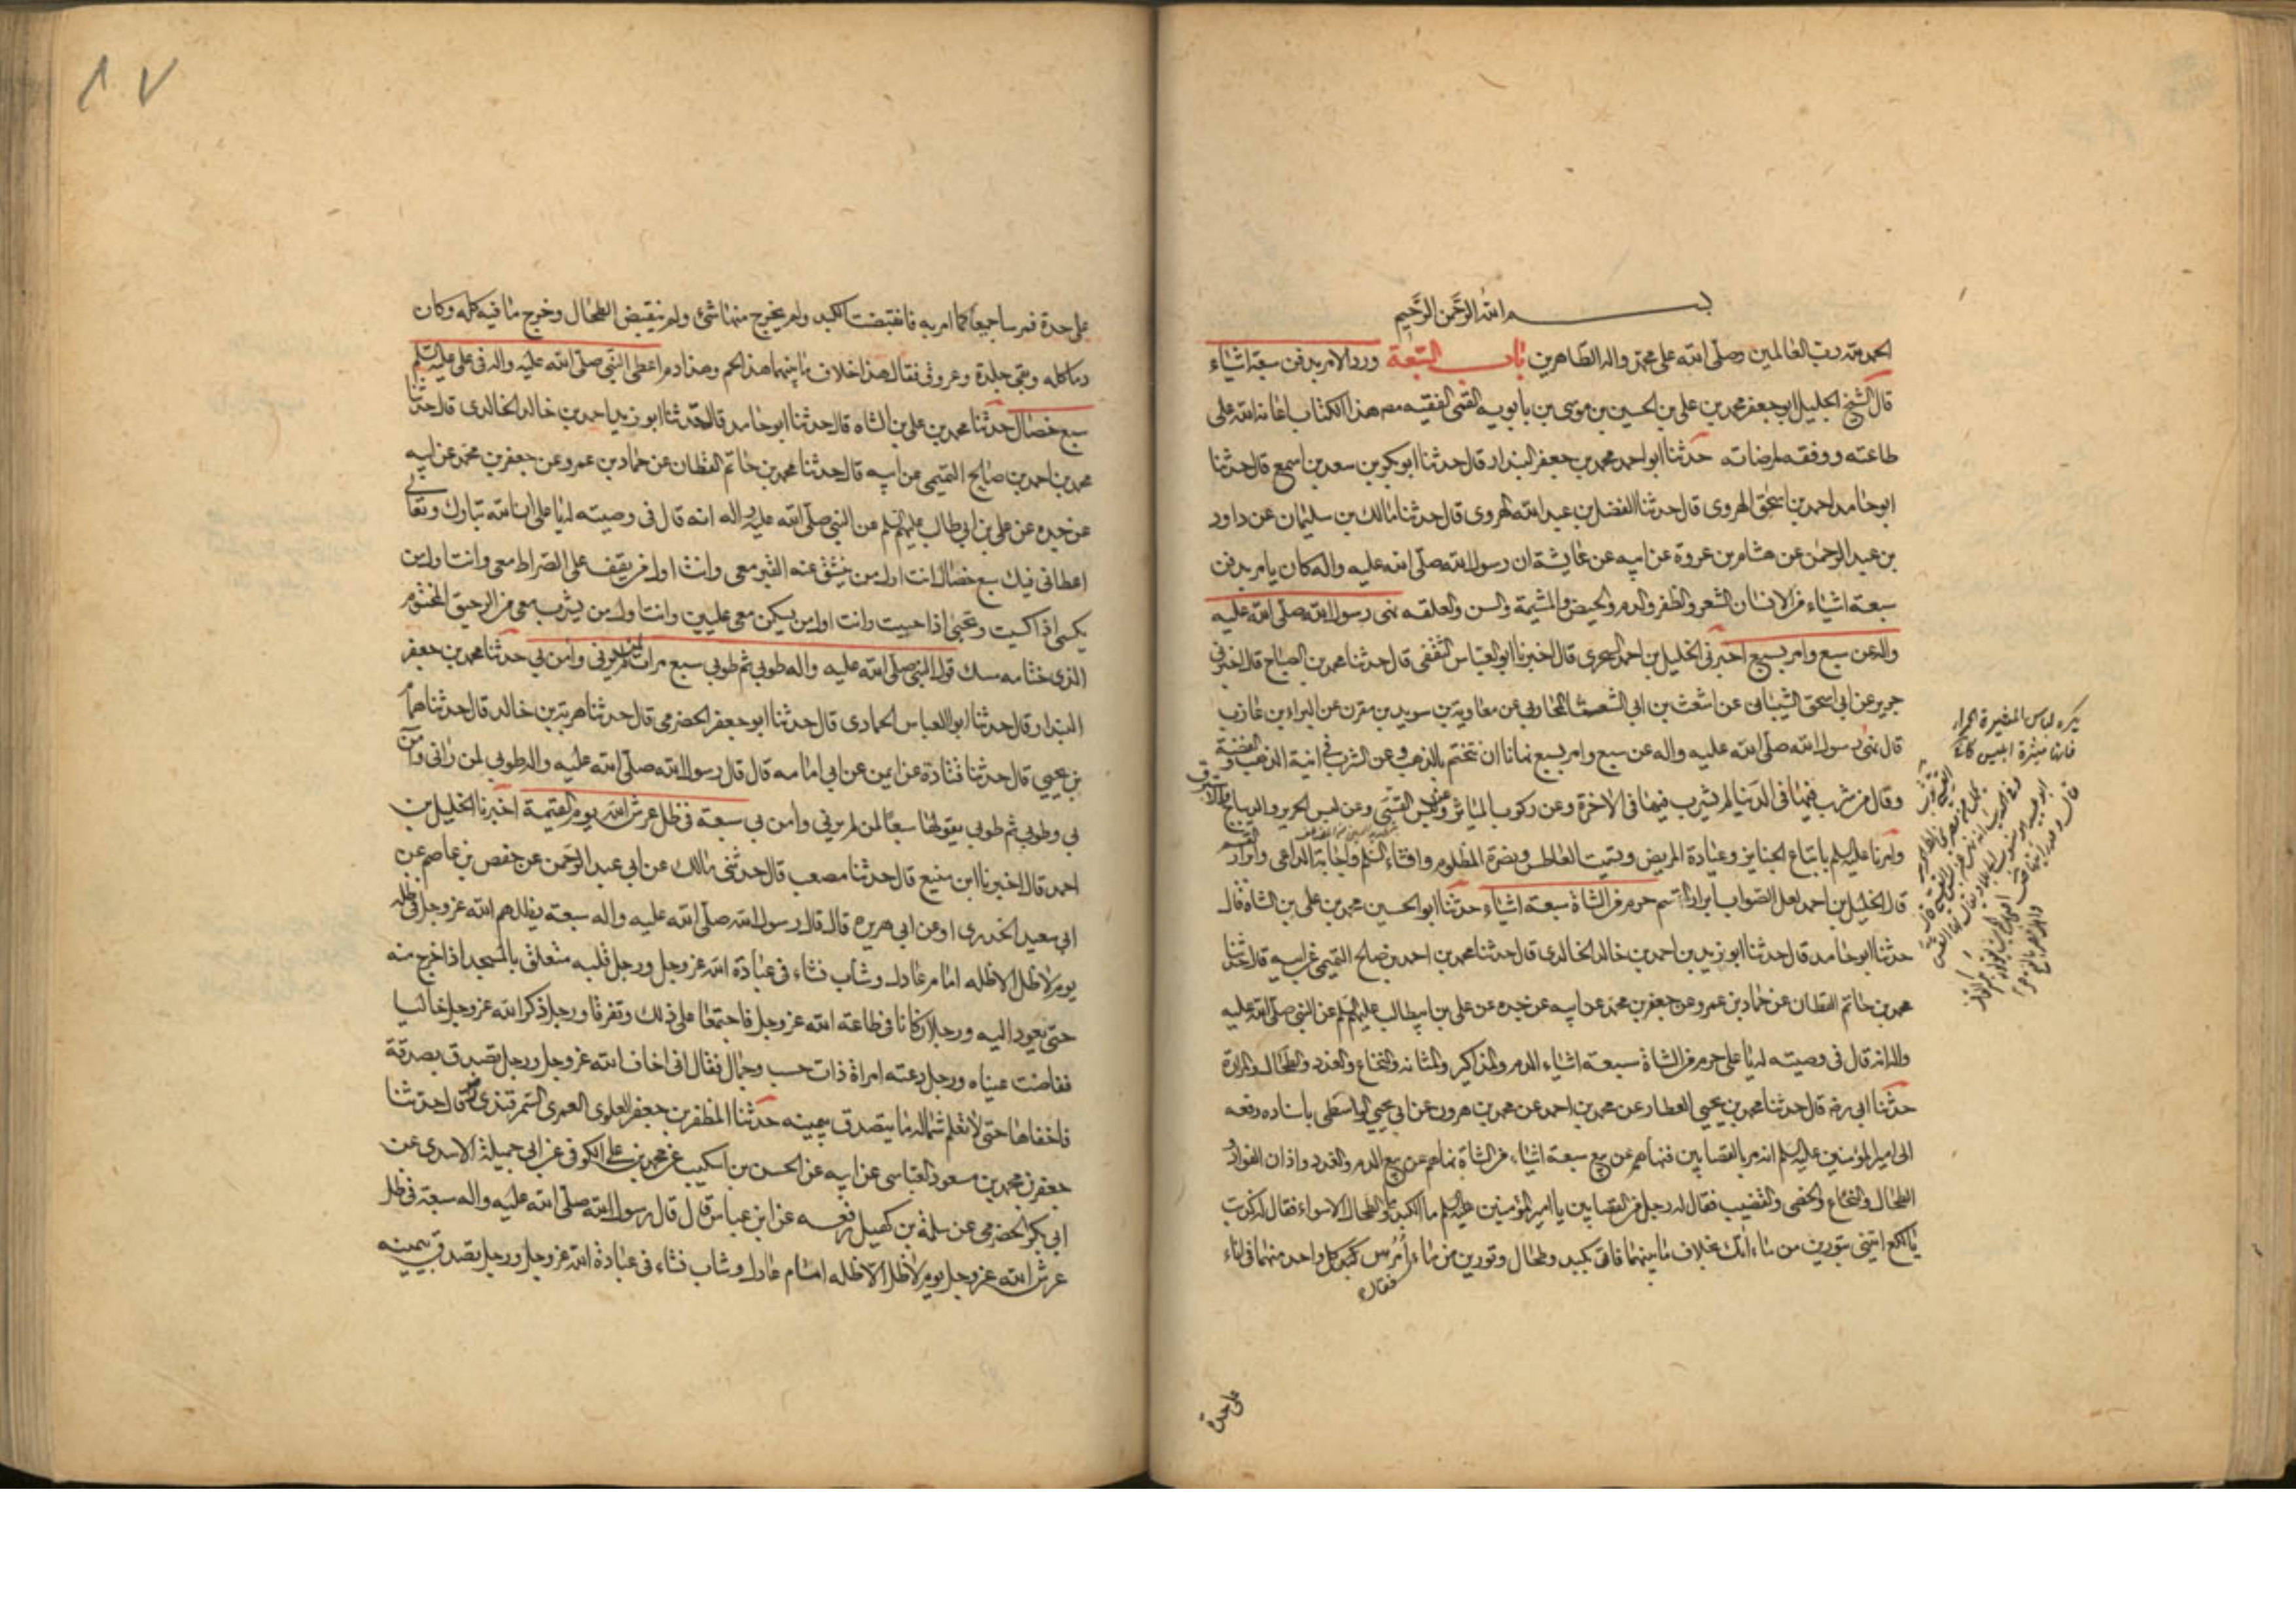 بسم الله الرحمن الرحيم
الحمد لله رب العالمين وصلى الله على محمد واله الطاهرين باب السبعة ورد الامر بدفن سبعة اشياء
قال الشيخ الجليل ابو جعفر محمد بن على بن الحسين بن موسى بن بابويه القمى الفقيه مصنف هذا الكتاب اعانه الله على
طاعته ووفقه لمرضاته حدثنا ابو احمد محمد بن جعفر البندار قال حدثنا ابو بكر بن سعد بن اسمع قال حدثنا
ابو حامد احمد بن اسحق الهروى قال حدثنا الفضل بن عبد الله الهروى قال حدثنا مالك بن سليمان عن داود
بن عبد الرحمن عن هشام بن عروة عن ابيه عن عايشة ان رسول الله صلى الله عليه واله كان يامر بدفن
سبعة اشياء من الانسان الشعر والظفر والدم والحيض والمشيمة والسن والعلقه نهى رسول الله صلى الله عليه
واله عن سبع وامر بسبع اخبرنى الخليل بن احمد السجرى قال اخبرنا ابو العباس الثقفى قال حدثنا محمد بن الصباح قال اخبرنى
جرير عن ابى اسحق الشيبانى عن اشعث بن ابى الشعثاء المحاربى عن معاوية بن سويد بن مقرن عن البراء بن عازب
قال نهى رسول الله صلى الله عليه واله عن سبع وامر بسبع نهانا ان نتختم بالذهب وعن الشرب فى انية الذهب والفضة
وقال من شرب فيها فى الدنيا لم يشرب فيها فى الاخرة وعن ركوب المياثر وعن لبس القسى وعن لبس الحرير والديباج والاستبرق
وامرنا عليه السلم باتباع الجنايز وعيادة المريض وتسميت العاطس ونصرة المظلوم وافشاء السلم واجابة الداعى وابرار القسم
قال الخليل بن احمد لعل الصواب ابرار المقسم حرم من الشاة سبعة اشياء حدثنا ابو الحسين محمد بن على بن الشاه قال
حدثنا ابو حامد قال حدثنا ابو زيد بن احمد بن خالد الخالدى قال حدثنا محمد بن احمد بن صالح التميمى عن ابيه قال حدثنا
محمد بن حاتم القطان عن حماد بن عمرو عن جعفر بن محمد عن ابيه عن جده عن على بن ابيطالب عليهم السلم عن النبى صلى الله عليه
واله انه قال فى وصيته له يا على حرم من الشاة سبعة اشياء الدم والمذاكير والمثانه والنخاع والغدد والطحال والمرارة
حدثنا ابى ره قال حدثنا محمد بن يحيى العطار عن محمد بن احمد عن محمد بن هرون عن ابى يحيى الواسطى باسناده رفعه
الى امير المؤمنين عليه السلم انه مر بالقصابين فنهاهم عن بيع سبعة اشياء من الشاة نهاهم عن بيع الدم والغدد واذان الفؤاد و
الطحال والنخاع والخصى والقضيب فقال له رجل من القصابين يا امير المؤمنين عليه السلم ما الكبد والطحال الا سواء فقال له كذبت
يا لكع ايتنى بتورين من ماء انك بخلاف ما بينهما فاتى بكبد وطحال وتورين من ماء فقال امرس كبد كل واحد منهما فى اناء
على حدة
يكره لباس المغيرة الحمراء
على حدة فمرسا جميعا كما امر به فانقبضت الكبد ولم يخرج منها شئ ولم ينقبض الطحال وخرج ما فيه كله وكان
دما كله وبقى جلدة وعروق فقال هذا خلاف ما بينهما هذا لحم وهذا دم اعطى النبى صلى الله عليه واله فى على عليه السلم
سبع خصال حدثنا محمد بن على بن الشاه قال حدثنا ابو حامد قال حدثنا ابو زيد احمد بن خالد الخالدى قال حدثنا
محمد بن احمد بن صالح التميمى عن ابيه قال حدثنا محمد بن حاتم القطان عن حماد بن عمرو عن جعفر بن محمد عن ابيه
عن جده عن على بن ابى طالب عليهم السلم عن النبى صلى الله عليه واله انه قال فى وصيته له يا على ان الله تبارك وتعالى
اعطانى فيك سبع خصال انت اول من ينشق عنه القبر معى وانت اول من يقف على الصراط معى وانت اول من
يكسى اذا كسيت ويحيى اذا حييت وانت اول من يسكن معى عليين وانت اول من يشرب معى من الرحيق المختوم
الذى ختامه مسك قول النبى صلى الله عليه واله طوبى ثم طوبى سبع مرات لمن لم يرنى وامن بى حدثنا محمد بن جعفر
البندار قال حدثنا ابو العباس الحمادى قال حدثنا ابو جعفر الحضرمى قال حدثنا هدبة بن خالد قال حدثنا همام
بن يحيى قال حدثنا قتادة عن ايمن عن ابى امامه قال قال رسول الله صلى الله عليه واله طوبى لمن رانى وامن
بى وطوبى ثم طوبى يقولها سبعا لمن لم يرنى وامن بى سبعة فى ظل عرش الله يوم القيمة اخبرنا الخليل بن
احمد قال اخبرنا ابن منيع قال حدثنا مصعب قال حدثنى مالك عن ابى عبد الرحمن عن حفص بن عاصم عن
ابى سعيد الخدرى او عن ابى هريره قال قال رسول الله صلى الله عليه واله سبعة يظلهم الله عز وجل فى ظله
يوم لا ظل الا ظله امام عادل وشاب نشاء فى عبادة الله عز وجل ورجل قلبه متعلق بالمسجد اذا خرج منه
حتى يعود اليه ورجلان كانا فى طاعة الله عز وجل فاجتمعا على ذلك وتفرقا ورجل ذكر الله عز وجل خاليا
ففاضت عيناه ورجل دعته امراة ذات حسب وجمال فقال انى اخاف الله عز وجل ورجل تصدق بصدقة
فاخفاها حتى لا تعلم شماله ما يتصدق بيمينه حدثنا المظفر بن جعفر العلوى العمرى السمرقندى قال حدثنا
جعفر بن محمد بن مسعود العياشى عن ابيه عن الحسن بن اسكيب عن محمد بن على الكوفى عن ابى جميلة الاسدى عن
ابى بكر الحضرمى عن سلمة بن كهيل رفعه عن ابن عباس قال قال رسول الله صلى الله عليه واله سبعة فى ظل
عرش الله عز وجل يوم لا ظل الا ظله امام عادل وشاب نشاء فى عبادة الله عز وجل ورجل تصدق بيمينه